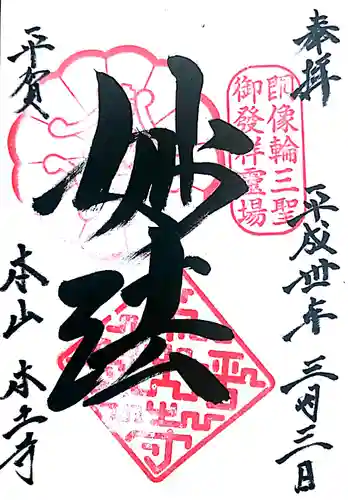 奉拝
平成卅年 三月三日
師像輪三聖
御發祥靈場
妙法
平賀
本山 本土寺